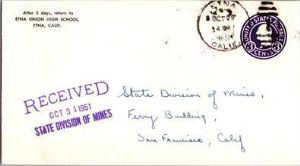 After 5 days, return to
ETNA UNION HIGH SCHOOL,
ETNA, CALIF.
ETNA
OCT 29
CALIF.
UNITED STATES
CENTS
RECEIVED
OCT 31 1951
STATE DIVISION OF MINES
State Division of Mines,
Ferry Building,
San Francisco, Calif